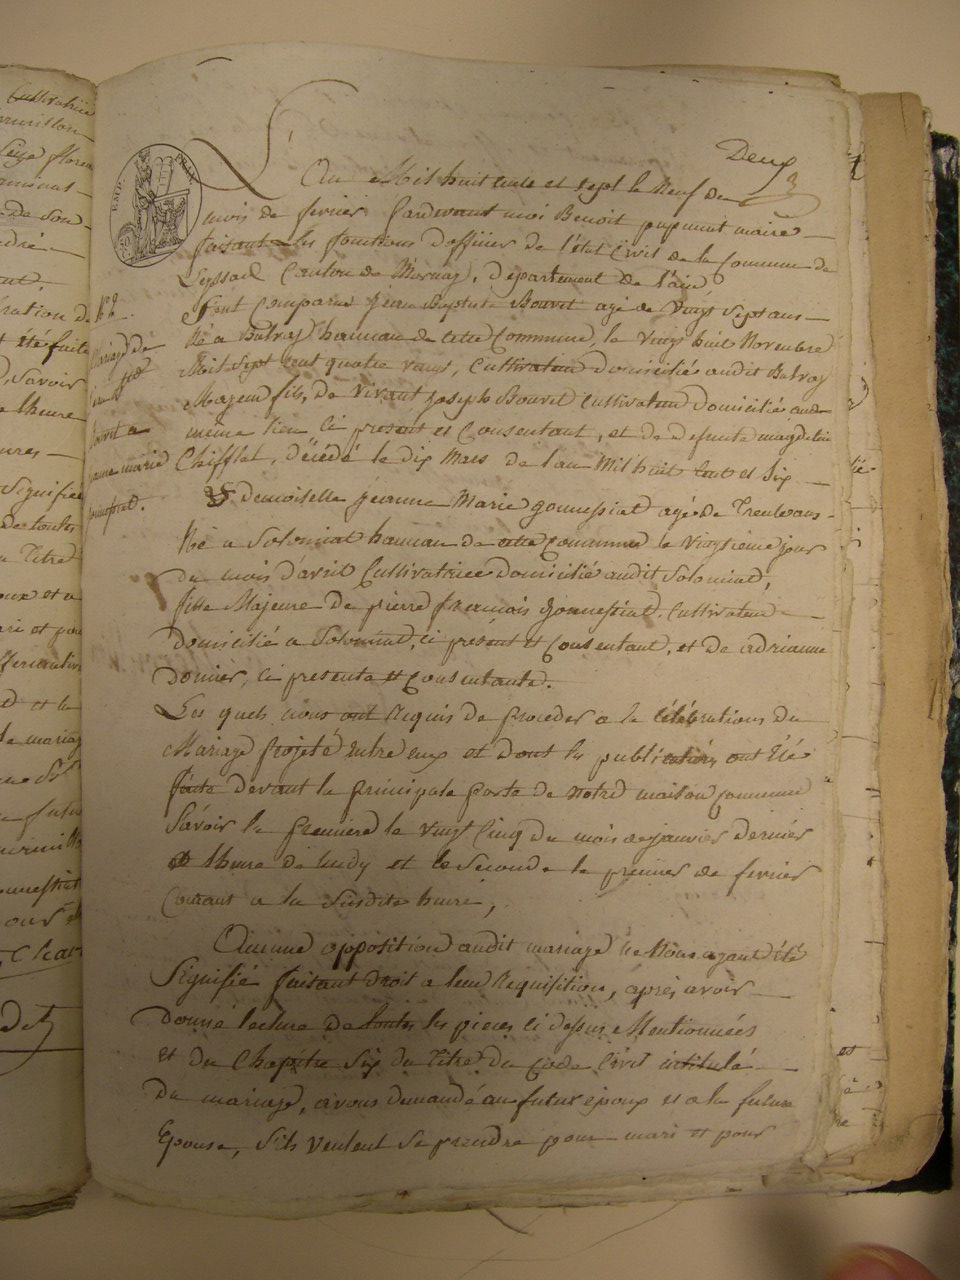 Deux
2
L'an Mil huit cent et sept le Neuf du
mois de fevrier Pardevant moi Benoit maire
faisant les fonctions d'officier de l'état Civil de la Commune de
Leyssard Canton de département de l'ain
Sont Comparus jean Baptiste Bouvet agé de Vingt Sept ans
Né a Balvay hamau de cette Commune, le Vingt huit Novembre
Mil Sept Cent quatre Vingt, Cultivateur domicilié audit Balvay
Majeur fils, de Vivant joseph Bouvet Cultivateur domicilié au
même lieu ci present et Consentant, et de defunte magdelaine
Chifflet, décédé le dix Mars de l'an Mil huit Cent et Six
Et demoiselle jeanne Marie gonnessiat agé de Trente ans
Né a Solomiat hamau de cette Commune le Vingtième jour
du mois d'avril Cultivatrice domicilié audit Solomiat,
fille Majeure de pierre francois Gonnessiat Cultivateur
domicilié a Solomiat, ci présent et Consentant, et de adrianne
ci presente et Consentante.
Les quels nous ont Requis de proceder a la célébrations du
Mariage projeté entre eux et dont les publications ont Eté
faite devant la principale porte de notre maison commune
Savoir la premiere le Vingt Cinq du mois de janvier dernier
a lheure de midy et la Seconde le premier de fevrier
Courant a la Susdite heure,
Aucune opposition audit mariage ne Nous ayant Eté
Signifié faisant droit a leur Requisition, après avoir
donné lecture de toutes les pieces ci dessus Mentionnées
et du Chapitre Six du Titre du Code Civil intitulé
Du mariage, avons demandé au futur epoux et a la future
Epouse, S'ils veulent Se prendre pour mari et pour
Mariage de
jean Bte
Bouvet a
jeanne marie
gonnessiat.
EMP. FRAN.